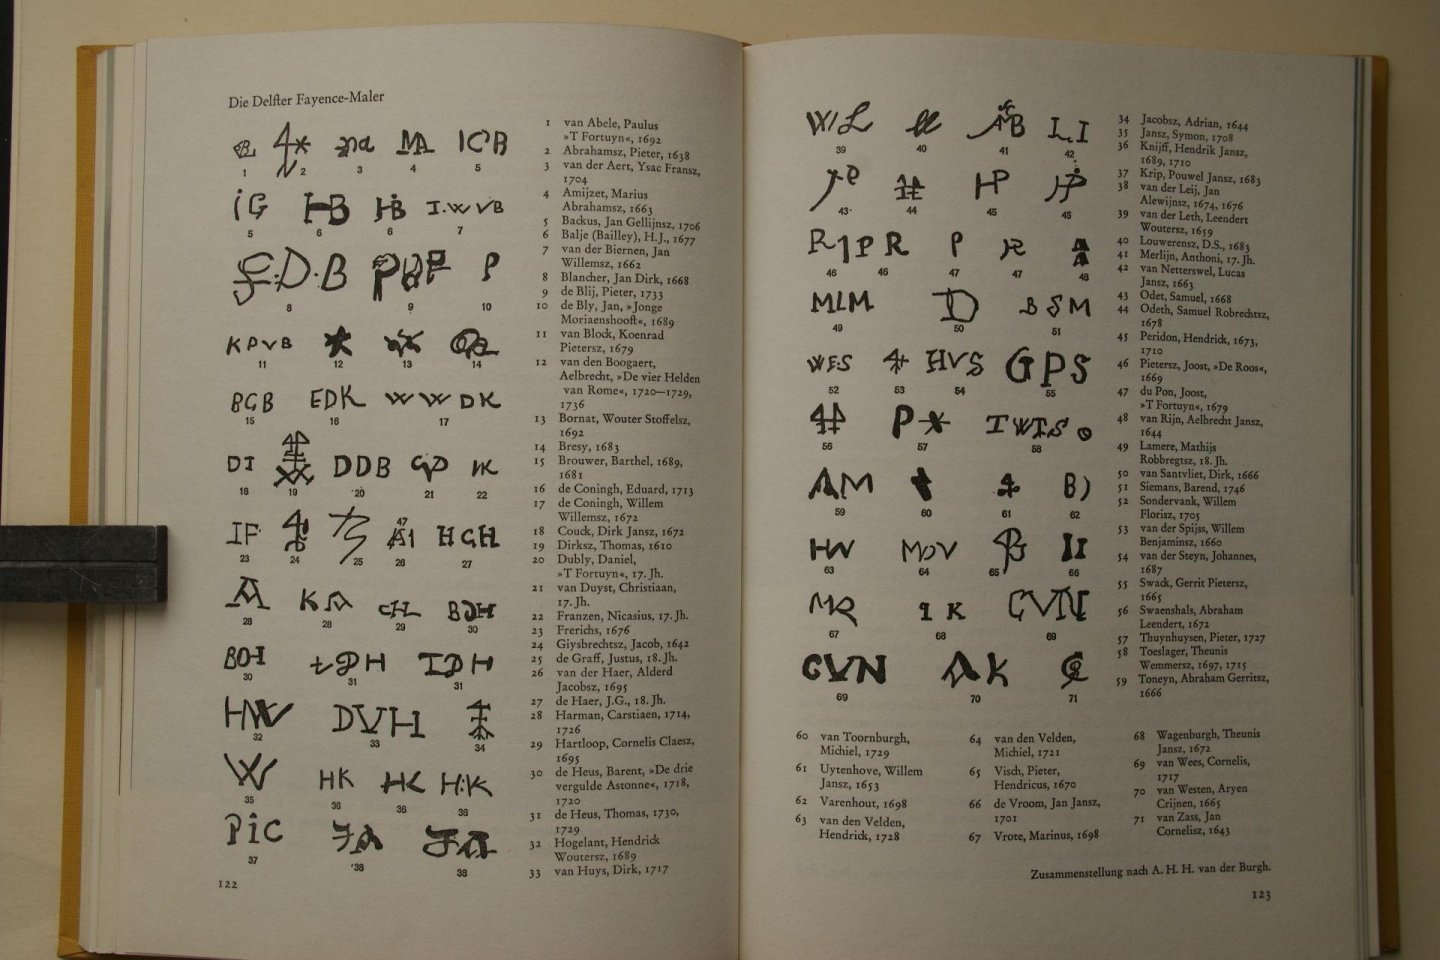 Die Delfter Fayence-Maler
1 2 3 4 ICB 5
iG 5 HB 6 HB 6 I.WVB 7
D.B 8 9 P 10
KPVB 11 12 13 14
BGB 15 EDK 16 WW DK 17
DI 18 19 DDB 20 21 22
IF 23 24 25 47 26 HGH 27
A 28 KA 28 CH 29 30
30 31 31
HW 32 DVH 33 34
W 35 HK 36 HK 36 H.K 36
PiC 37 38 38
1 van Abele, Paulus
»T Fortuyn«, 1692
2 Abrahamsz, Pieter, 1638
3 van der Aert, Ysac Fransz,
1704
4 Amijzet, Marius
Abrahamsz, 1663
5 Backus, Jan Gellijnsz, 1706
6 Balje (Bailley), H.J., 1677
7 van der Biernen, Jan
Willemsz, 1662
8 Blancher, Jan Dirk, 1668
9 de Blij, Pieter, 1733
10 de Bly, Jan, »Jonge
Moriaenshooft«, 1689
11 van Block, Koenrad
Pietersz, 1679
12 van den Boogaert,
Aelbrecht, »De vier Helden
van Rome«, 1720—1729,
1736
13 Bornat, Wouter Stoffelsz,
1692
14 Bresy, 1683
15 Brouwer, Barthel, 1689,
1681
16 de Coningh, Eduard, 1713
17 de Coningh, Willem
Willemsz, 1672
18 Couck, Dirk Jansz, 1672
19 Dirksz, Thomas, 1610
20 Dubly, Daniel,
»T Fortuyn«, 17. Jh.
21 van Duyst, Christiaan,
17. Jh.
22 Franzen, Nicasius, 17. Jh.
23 Frerichs, 1676
24 Giysbrechtsz, Jacob, 1642
25 de Graff, Justus, 18. Jh.
26 van der Haer, Alderd
Jacobsz, 1695
27 de Haer, J.G., 18. Jh.
28 Harman, Carstiaen, 1714,
1726
29 Hartloop, Cornelis Claesz,
1695
30 de Heus, Barent, »De drie
vergulde Astonne«, 1718,
1720
31 de Heus, Thomas, 1730,
1729
32 Hogelant, Hendrick
Woutersz, 1689
33 van Huys, Dirk, 1717
122
39 40 41 LI 42
43 44 HP 45 45
R1PR 46 46 P 47 47 48
MLM 49 D 50 BSM 51
WFS 52 53 HVS 54 GPS 55
56 P* 57 58
AM 59 60 61 B) 62
HW 63 MDV 64 65 II 66
67 68 GVN 69
GVN 69 AK 70 71
34 Jacobsz, Adrian, 1644
35 Jansz, Symon, 1708
36 Knijff, Hendrik Jansz,
1689, 1710
37 Krip, Pouwel Jansz, 1683
38 van der Leij, Jan
Alewijnsz, 1674, 1676
39 van der Leth, Leendert
Woutersz, 1659
40 Louwerensz, D.S., 1683
41 Merlijn, Anthoni, 17. Jh.
42 van Netterswel, Lucas
Jansz, 1663
43 Odet, Samuel, 1668
44 Odeth, Samuel Robrechtsz,
1678
45 Peridon, Hendrick, 1673,
1710
46 Pietersz, Joost, »De Roos«,
1669
47 du Pon, Joost,
»T Fortuyn«, 1679
48 van Rijn, Aelbrecht Jansz,
1644
49 Lamere, Mathijs
Robbregtsz, 18. Jh.
50 van Santvliet, Dirk, 1666
51 Siemans, Barend, 1746
52 Sondervank, Willem
Florisz, 1705
53 van der Spijss, Willem
Benjaminsz, 1660
54 van der Steyn, Johannes,
1687
55 Swack, Gerrit Pietersz,
1665
56 Swaenshals, Abraham
Leendert, 1672
57 Thuynhuysen, Pieter, 1727
58 Toeslager, Theunis
Wemmersz, 1697, 1715
59 Toneyn, Abraham Gerritsz,
1666
60 van Toornburgh,
Michiel, 1729
61 Uytenhove, Willem
Jansz, 1653
62 Varenhout, 1698
63 van den Velden,
Hendrick, 1728
64 van den Velden,
Michiel, 1721
65 Visch, Pieter,
Hendricus, 1670
66 de Vroom, Jan Jansz,
1701
67 Vrote, Marinus, 1698
68 Wagenburgh, Theunis
Jansz, 1672
69 van Wees, Cornelis,
1717
70 van Westen, Aryen
Crijnen, 1665
71 van Zass, Jan
Cornelisz, 1643
Zusammenstellung nach A. H. H. van der Burgh.
123